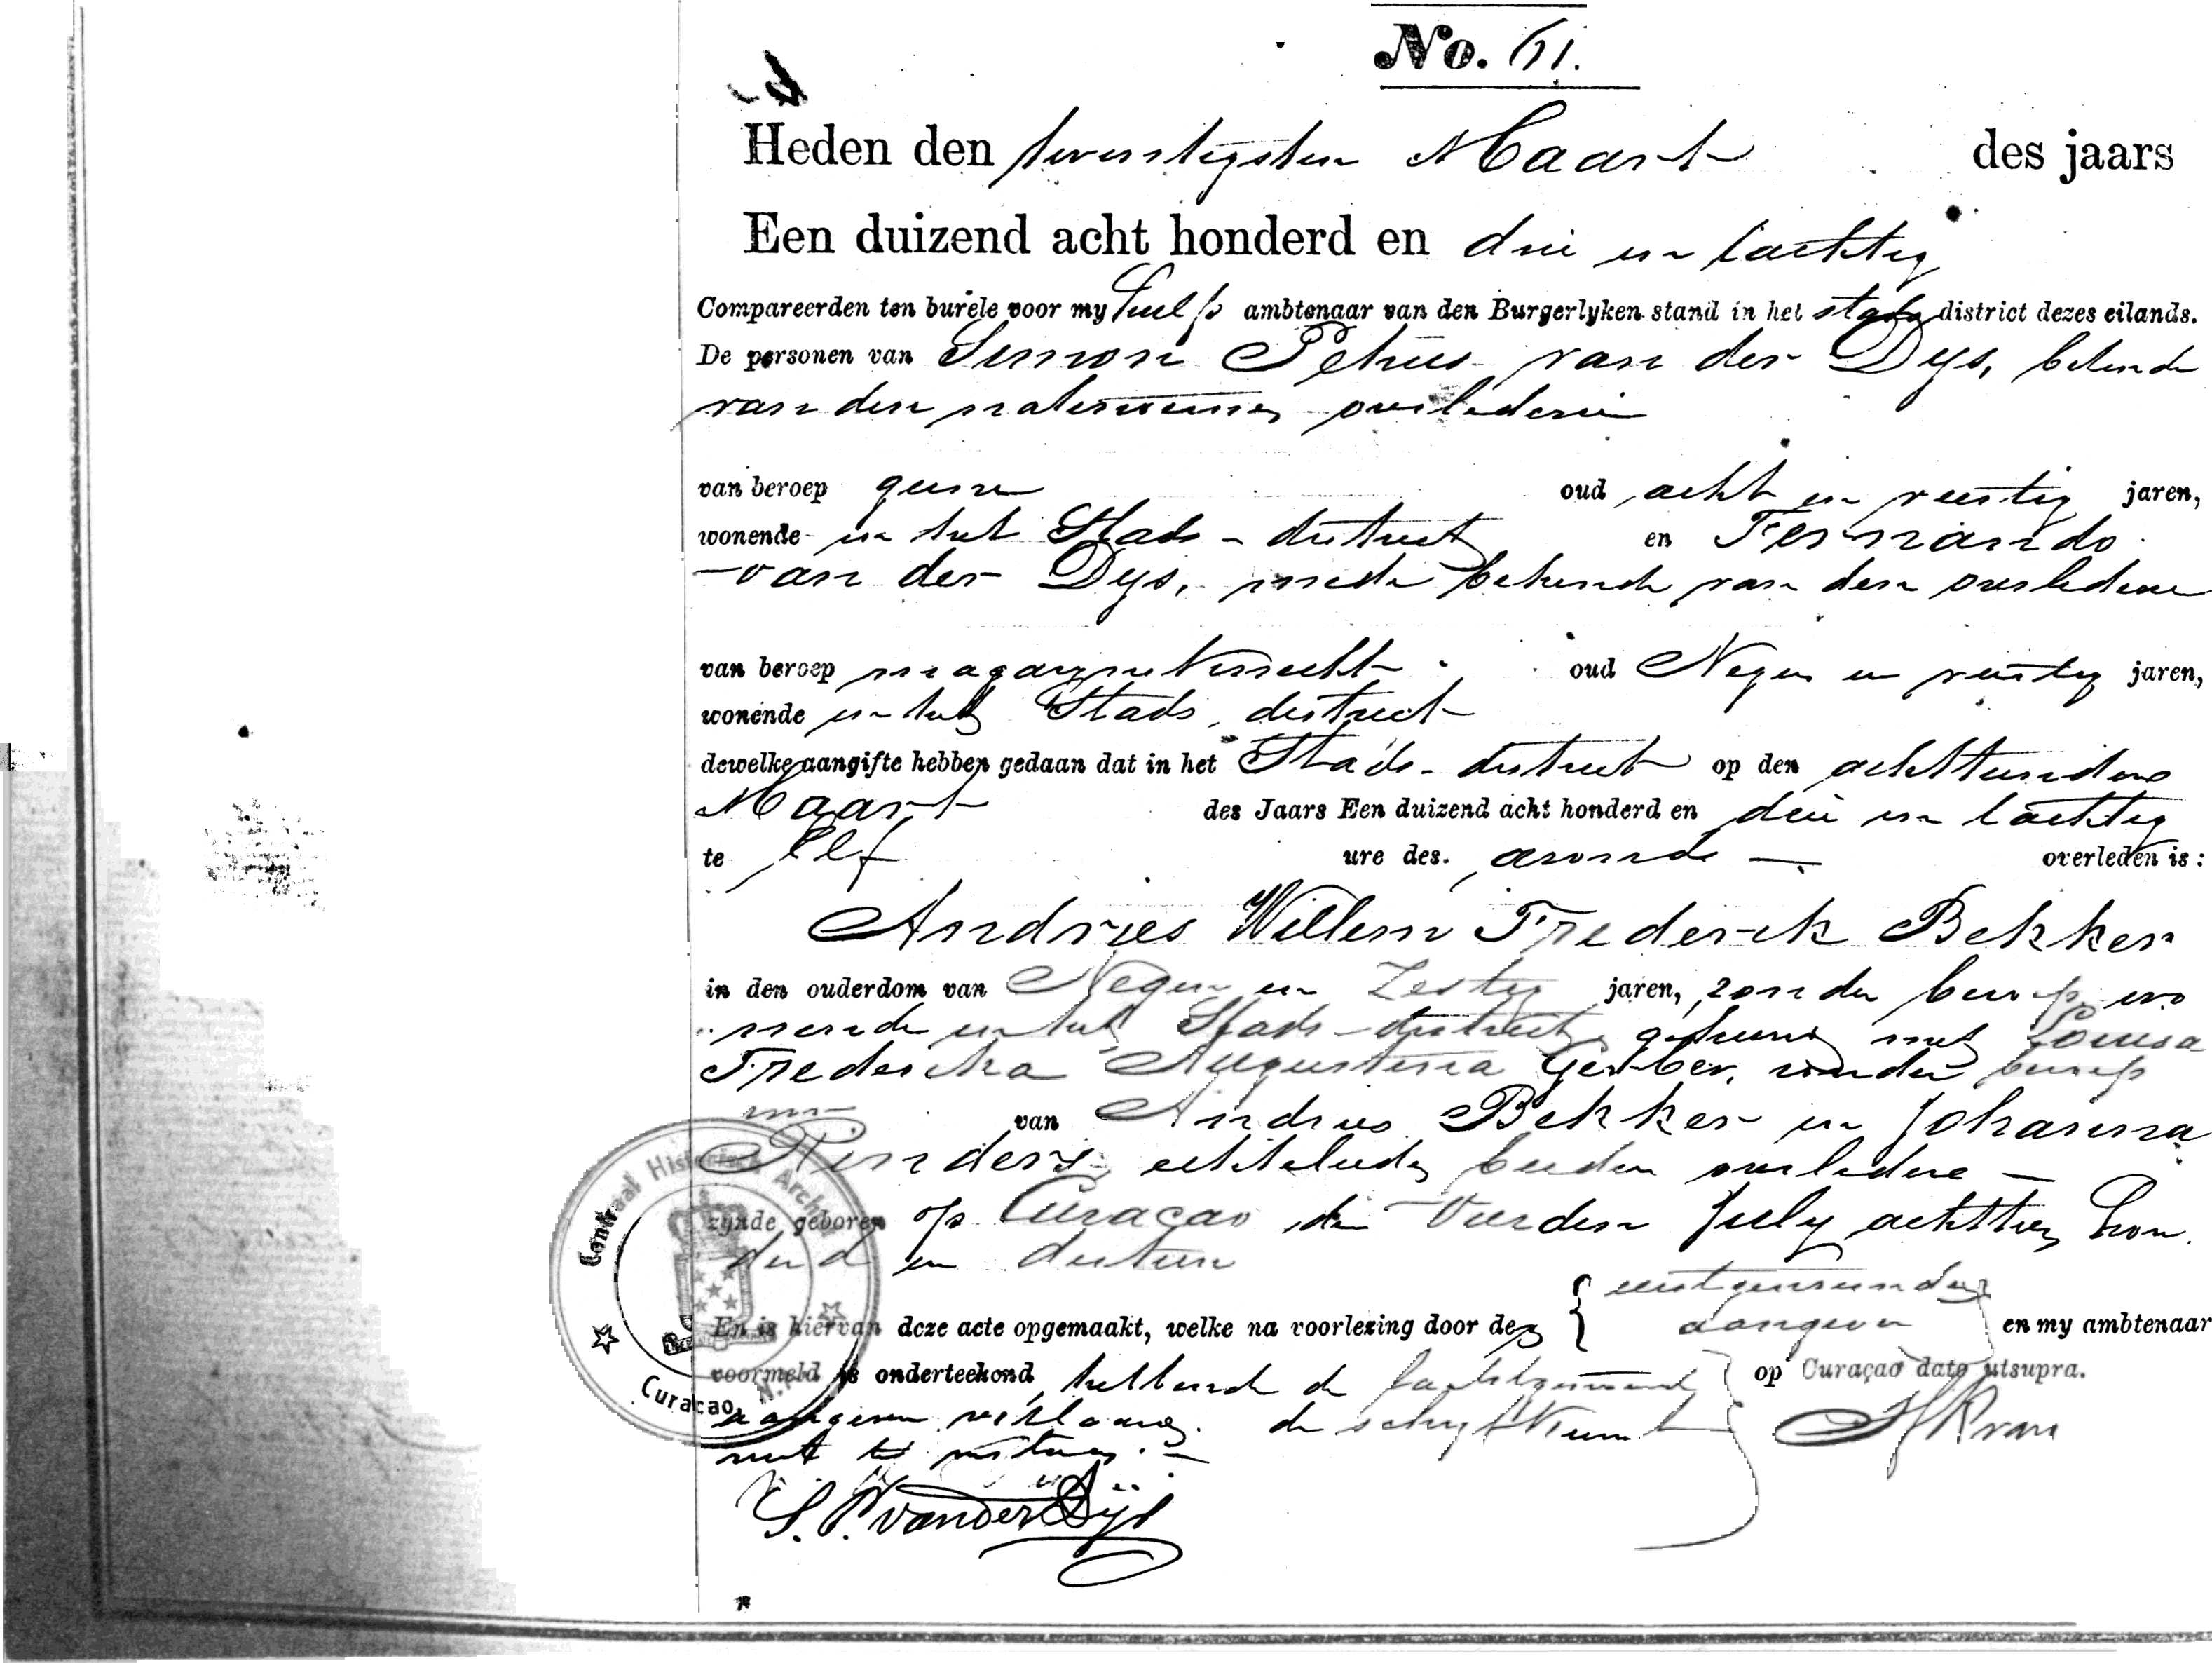 No. 61.
Heden den twintigsten Maart des jaars
Een duizend acht honderd en drie en tachtig
Compareerden ten burele voor my hulp ambtenaar van den Burgerlyken stand in het stads district dezes eilands.
De personen van Simon Petrus van der Dys, bekende
van den natenoemen overledene
van beroep geene oud acht en veertig jaren,
wonende in het Stads-district en Fernando
van der Dys, mede bekende van den overledene
van beroep magazynknecht oud Negen en veertig jaren,
wonende in het Stads district
dewelke aangifte hebben gedaan dat in het Stads-district op den achttienden
Maart des Jaars Een duizend acht honderd en drie en tachtig
te elf ure des avonds overleden is:
Andries Willem Frederik Bekker
in den ouderdom van Negen en Zestig jaren, zonder beroep wo
nende in het Stads-district gehuwd met Louisa
Frederika Augustina Gerber, zonder beroep
zoon van Andries Bekker en Johanna
Rinders, echtelieden beiden overleden
zynde geboren op Curaçao den Vierden July achttien hon
derd en dertien
En is hiervan deze acte opgemaakt, welke na voorlezing door den { eerstgenoemden
aangever } en my ambtenaar
voormeld is onderteekend, hebbende de laatstgenoemde } op Curaçao dato utsupra.
aangever verklaard de schryfkunst
niet te verstaan.
S. P. van der Dijs
Centraal Historisch Archief
Curaçao, N.A.